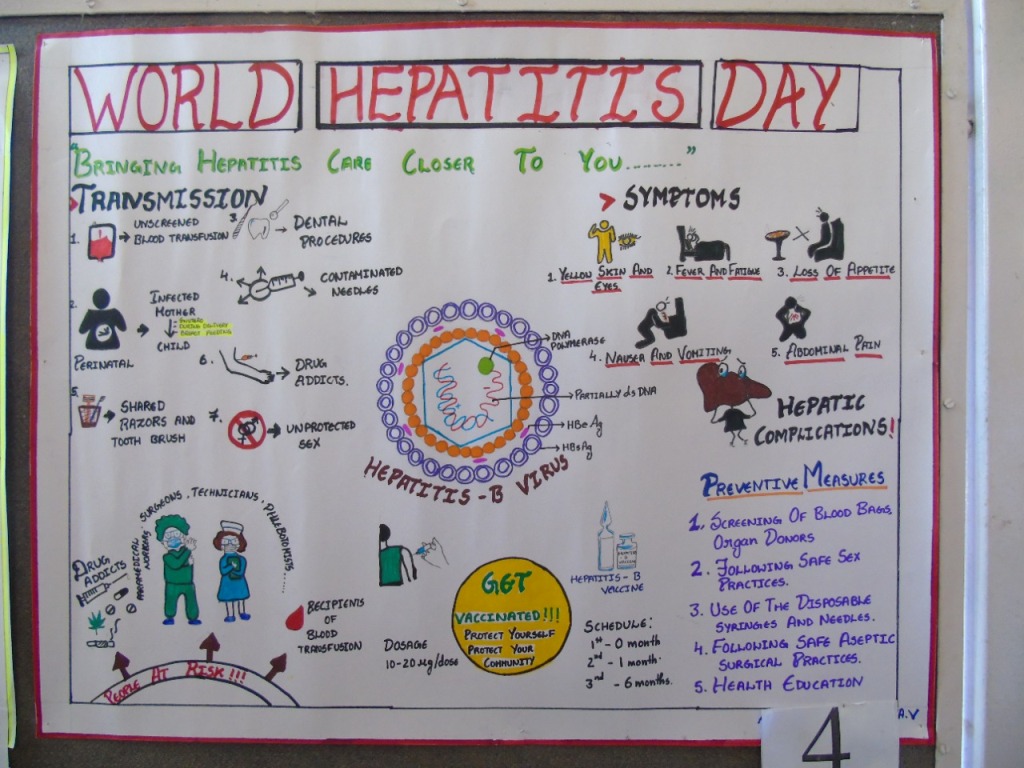 WORLD HEPATITIS DAY
"BRINGING HEPATITIS CARE CLOSER TO YOU........"
> TRANSMISSION
1.
UNSCREENED
BLOOD TRANSFUSION
3.
DENTAL
PROCEDURES
4.
CONTAMINATED
NEEDLES
2.
PERINATAL
INFECTED
MOTHER
DURING DELIVERY
BREAST FEEDING
CHILD
6.
DRUG
ADDICTS.
5.
SHARED
RAZORS AND
TOOTH BRUSH
7.
UNPROTECTED
SEX
DNA
POLYMERASE
PARTIALLY ds DNA
HBe Ag
HBsAg
HEPATITIS-B VIRUS
> SYMPTOMS
1. YELLOW SKIN AND
EYES.
2. FEVER AND FATIGUE
3. LOSS OF APPETITE
4. NAUSER AND VOMITING
5. ABDOMINAL PAIN
HEPATIC
COMPLICATIONS!
PREVENTIVE MEASURES
1. SCREENING OF BLOOD BAGS,
ORGAN DONORS
2. FOLLOWING SAFE SEX
PRACTICES.
3. USE OF THE DISPOSABLE
SYRINGES AND NEEDLES.
4. FOLLOWING SAFE ASEPTIC
SURGICAL PRACTICES.
5. HEALTH EDUCATION
DRUG
ADDICTS
PARAMEDICAL
SURGEONS, TECHNICIANS, PHLEBOTOMISTS......
RECIPIENTS
OF
BLOOD
TRANSFUSION
PEOPLE AT RISK!!!
DOSAGE
10-20 µg/dose
GET
VACCINATED!!!
PROTECT YOURSELF
PROTECT YOUR
COMMUNITY
HEPATITIS-B
VACCINE
SCHEDULE:
1st - 0 month
2nd - 1 month.
3rd - 6 months.
A.V
4